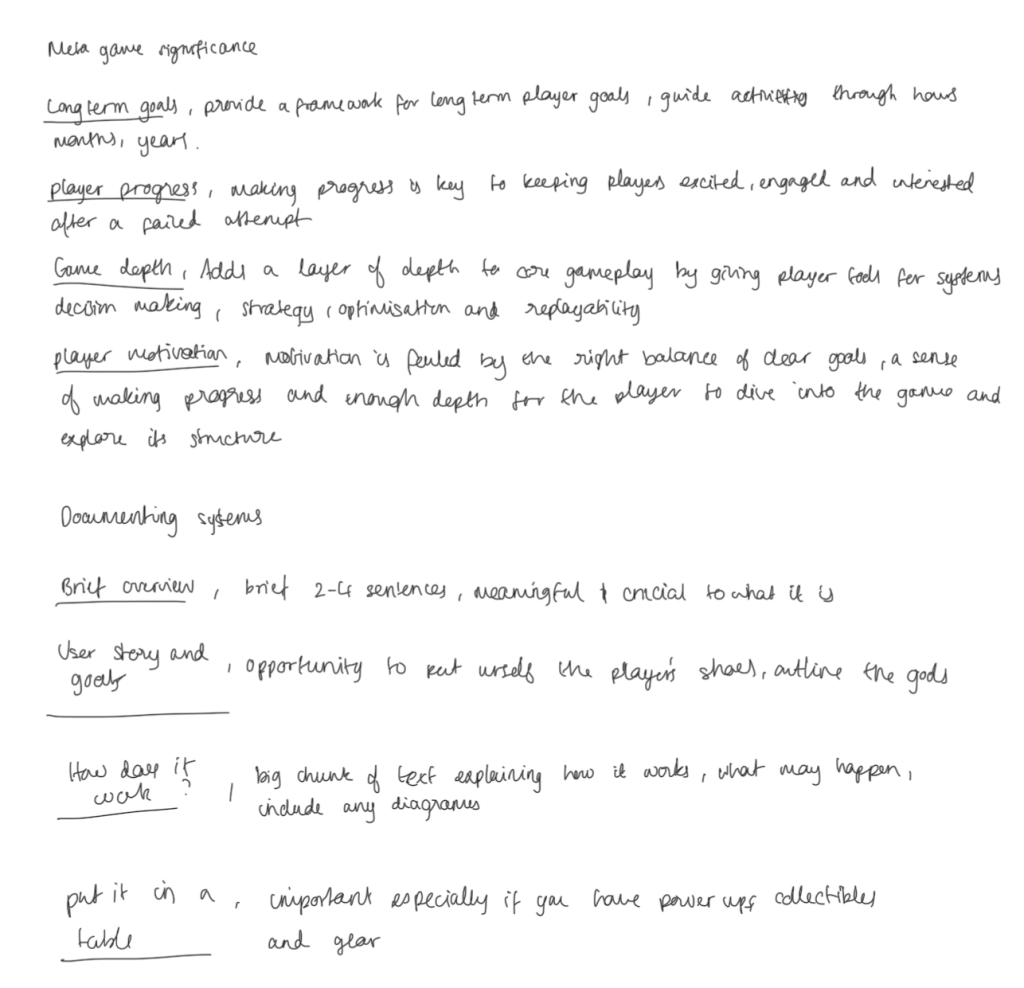 Meta game significance
Long term goals, provide a framework for long term player goals, guide activity through hours
months, years.
player progress, making progress is key to keeping players excited, engaged and interested
after a failed attempt
Game depth, Adds a layer of depth to core gameplay by giving player tools for systems
decision making, strategy, optimisation and replayability
player motivation, motivation is fueled by the right balance of clear goals, a sense
of making progress and enough depth for the player to dive into the game and
explore its structure
Documenting systems
Brief overview, brief 2-4 sentences, meaningful & crucial to what it is
User story and goals, opportunity to put urself the player's shoes, outline the goals
How does it work?, big chunk of text explaining how it works, what may happen,
include any diagrams
put it in a table, important especially if you have power ups collectibles
and gear